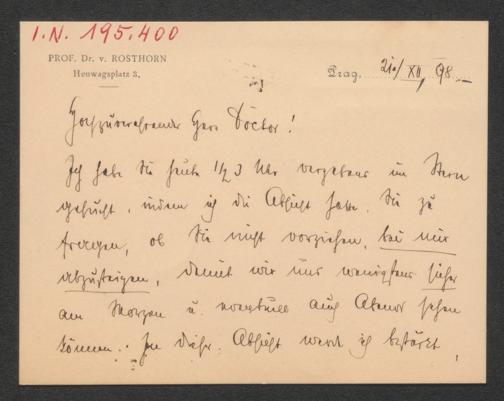 I.N. 195.400
PROF. Dr. v. ROSTHORN
Heuwagsplatz 3.
Prag, 21./XII, 98.
Hochzuverehrender Herr Doctor!
Ich habe Sie heute 1/2 3 Uhr vergebens im Stern
gesucht, indem ich die Absicht habe, Sie zu
fragen, ob Sie nicht vorziehen, bei mir
abzusteigen, damit wir uns wenigstens sicher
am Morgen u. eventuell auch Abend sehen
können. In dieser Absicht werde ich bestärkt,